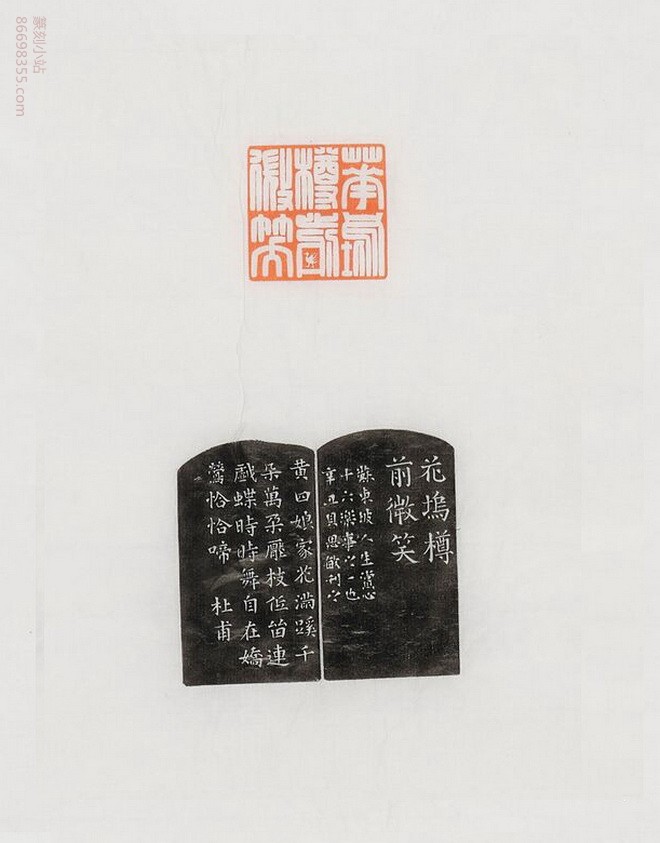 篆刻小站
86698355.com
華塢
樽前
微笑
花塢樽
前微笑
蘇東坡人生賞心
十六樂事之一也
辛丑貝思敏刊之
黃四娘家花滿蹊千
朵萬朵壓枝低留連
戲蝶時時舞自在嬌
鶯恰恰啼 杜甫